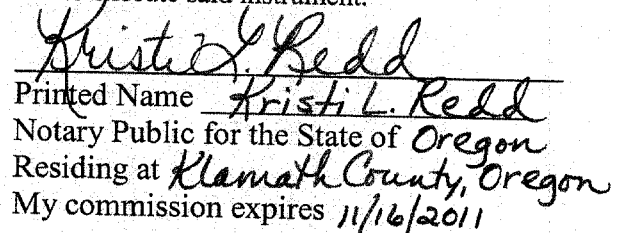 execute said instrument.
Kristi L. Redd
Printed Name Kristi L. Redd
Notary Public for the State of Oregon
Residing at Klamath County, Oregon
My commission expires 11/16/2011